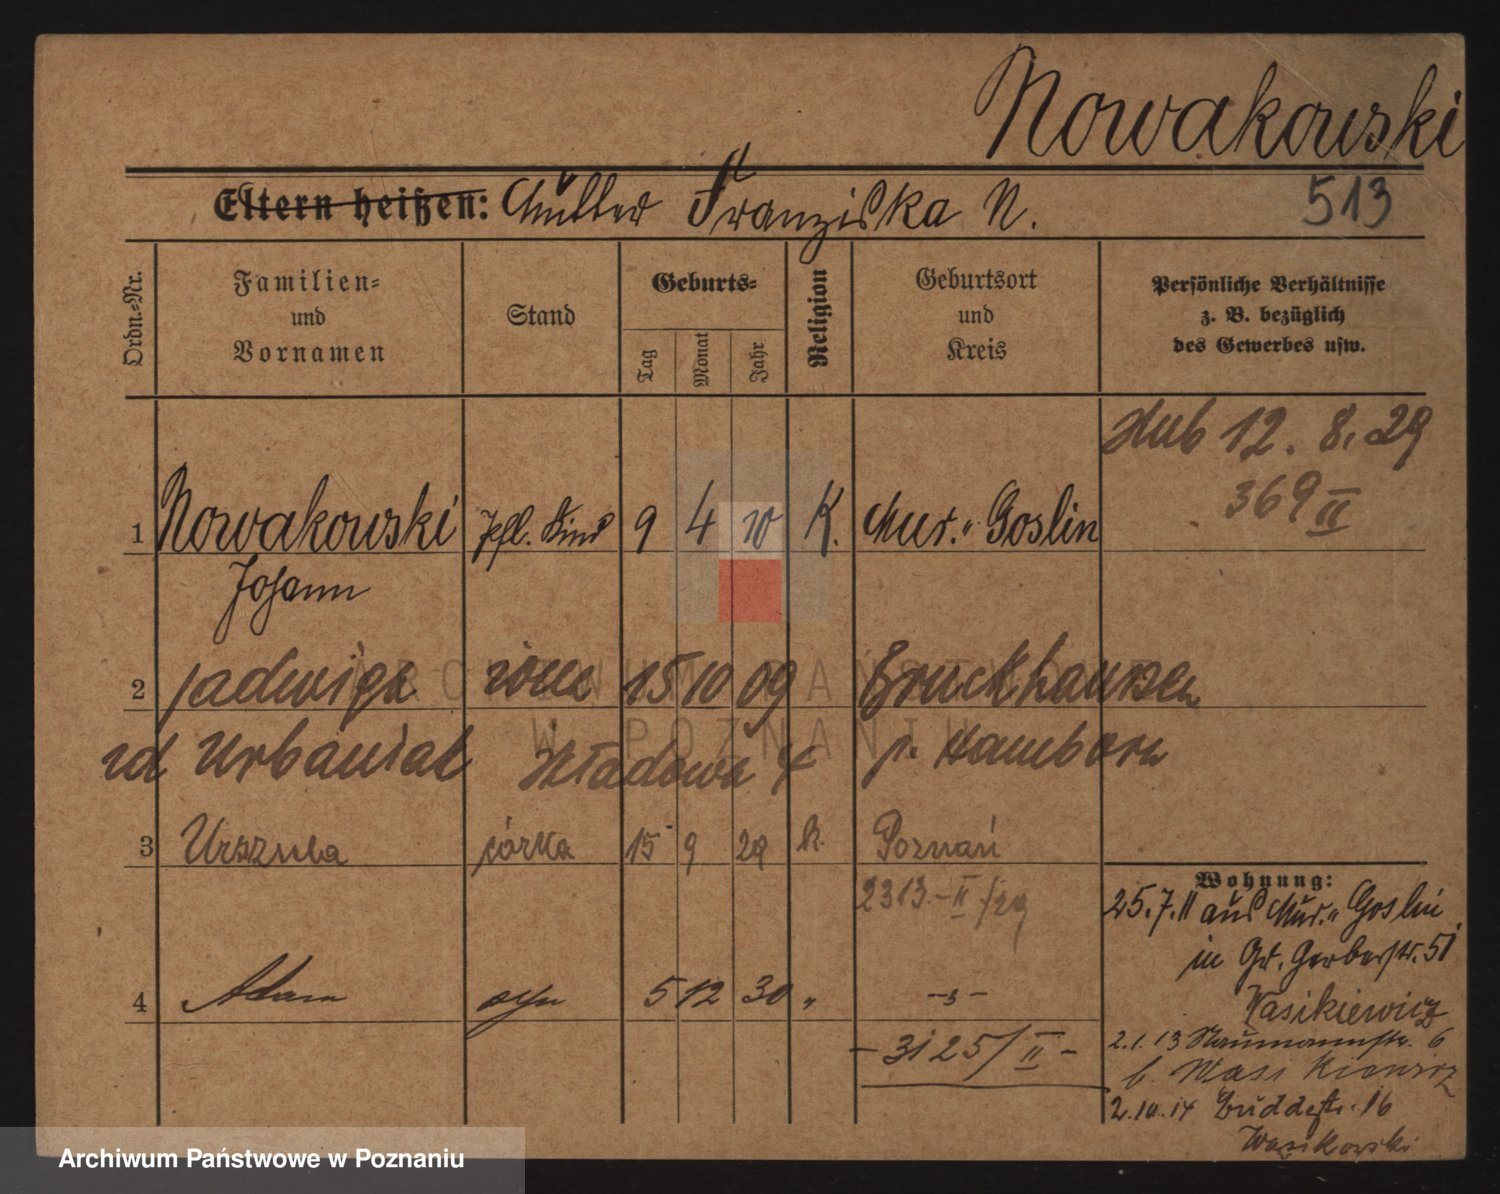 Nowakowski
513
Eltern heißen: Mutter Franziska N.
Ordn.-Nr.
Familien- und Vornamen
Stand
Geburts-
Tag
Monat
Jahr
Religion
Geburtsort und Kreis
Persönliche Verhältnisse z. B. bezüglich des Gewerbes usw.
ślub 12. 8. 29
369 II
1 Nowakowski Pfl. Kind 9 4 10 K. Mur. Goslin
Johann
2 Jadwiga żona 15 10 09 Bruckhausen
zd Urbaniak Składowa 4 p. Hamborn
3 Urszula córka 15 9 29 k. Poznań
2313 - II/29
4 Adam syn 5 12 30 " - " -
- 3125/II -
Wohnung:
25.7.11 aus Mur. Goslin
in Gr. Gerberstr. 51
Wasikiewicz
2.1.13 Naumannstr. 6
b. Wasikiewicz
2.10.14 Buddestr. 16
ARCHIWUM PAŃSTWOWE
W POZNANIU
Archiwum Państwowe w Poznaniu